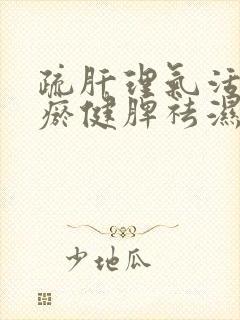 疏肝理氣活
瘀健脾祛濕
少地瓜